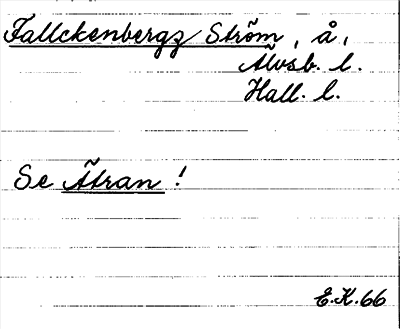 Fallckenbergz Ström, å,
Älvsb. l.
Hall. l.
Se Ätran!
E.K.66